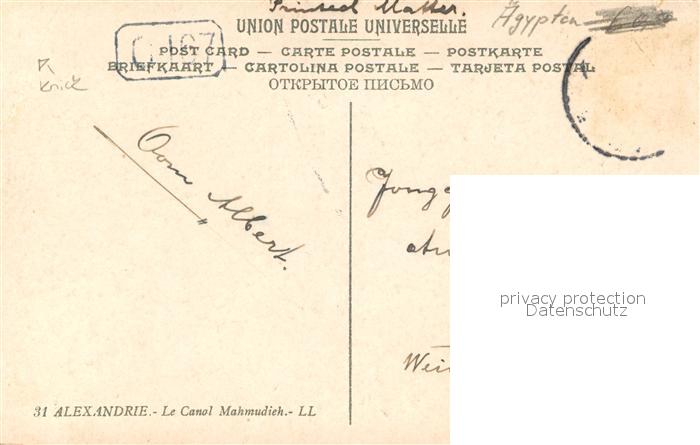 Printed Matter.
UNION POSTALE UNIVERSELLE
Ägypten
POST CARD — CARTE POSTALE — POSTKARTE
BRIEFKAART — CARTOLINA POSTALE — TARJETA POSTAL
ОТКРЫТОЕ ПИСЬМО
Knick
Oom Albert.
privacy protection
Datenschutz
31 ALEXANDRIE.- Le Canol Mahmudieh.- LL